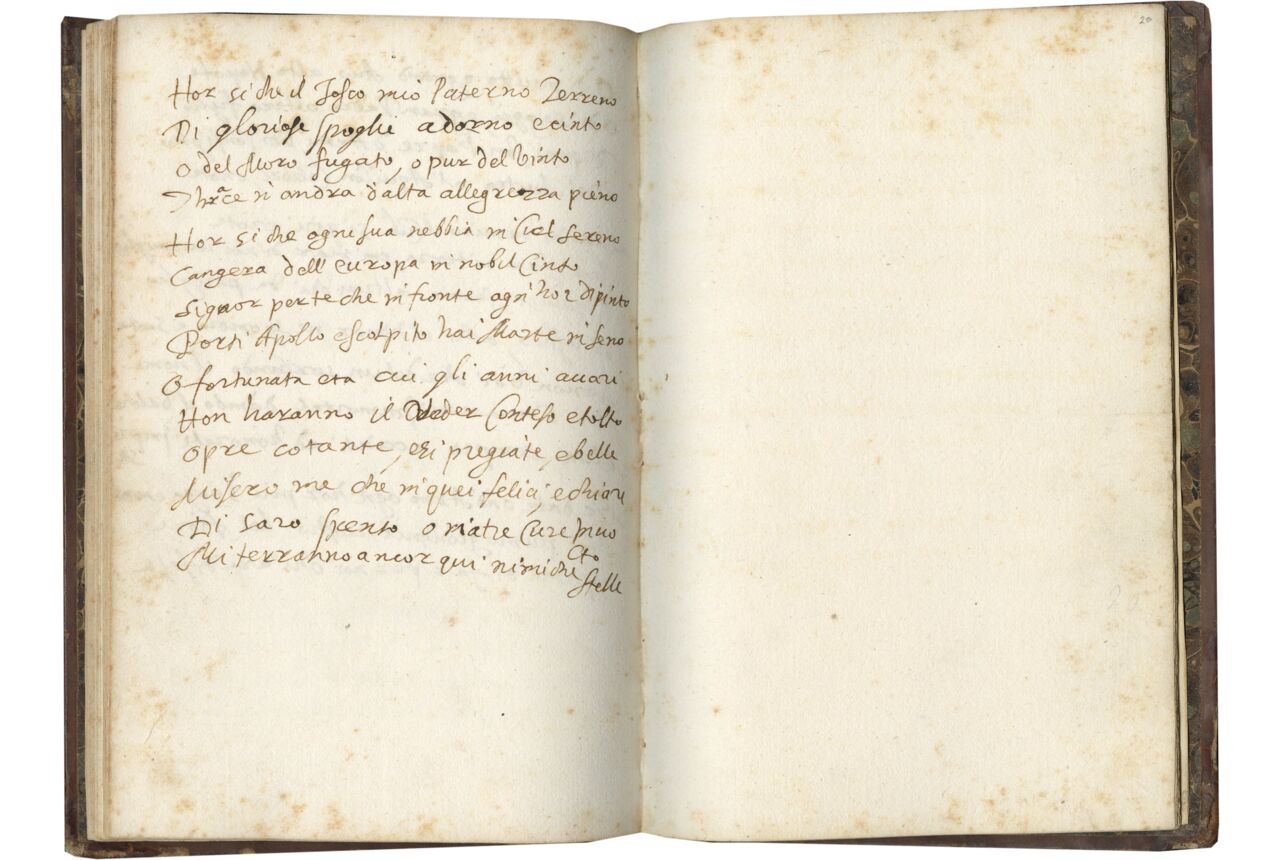 20
Hor si che il Tosco mio Paterno Terreno
Di gloriose spoglie adorno e cinto
o del Moro fugato, o pur del Vinto
Thrace n andra d'alta allegrezza pieno
Hor si che ogni sua nebbia in Ciel sereno
Cangera dell' europa in nobil Cinto
Signor per te che in fronte ogni hor dipinto
Porti Apollo e scolpito hai Marte in seno
O fortunata eta cui gli anni auari
Non haranno il Veder Conteso e tolto
opre cotante, e si pregiate, e belle
Misero me che in quei felici, e chiari
Di saro spento o in atre Cure Inuo
lto
Mi terranno ancor qui nimiche
stelle
20